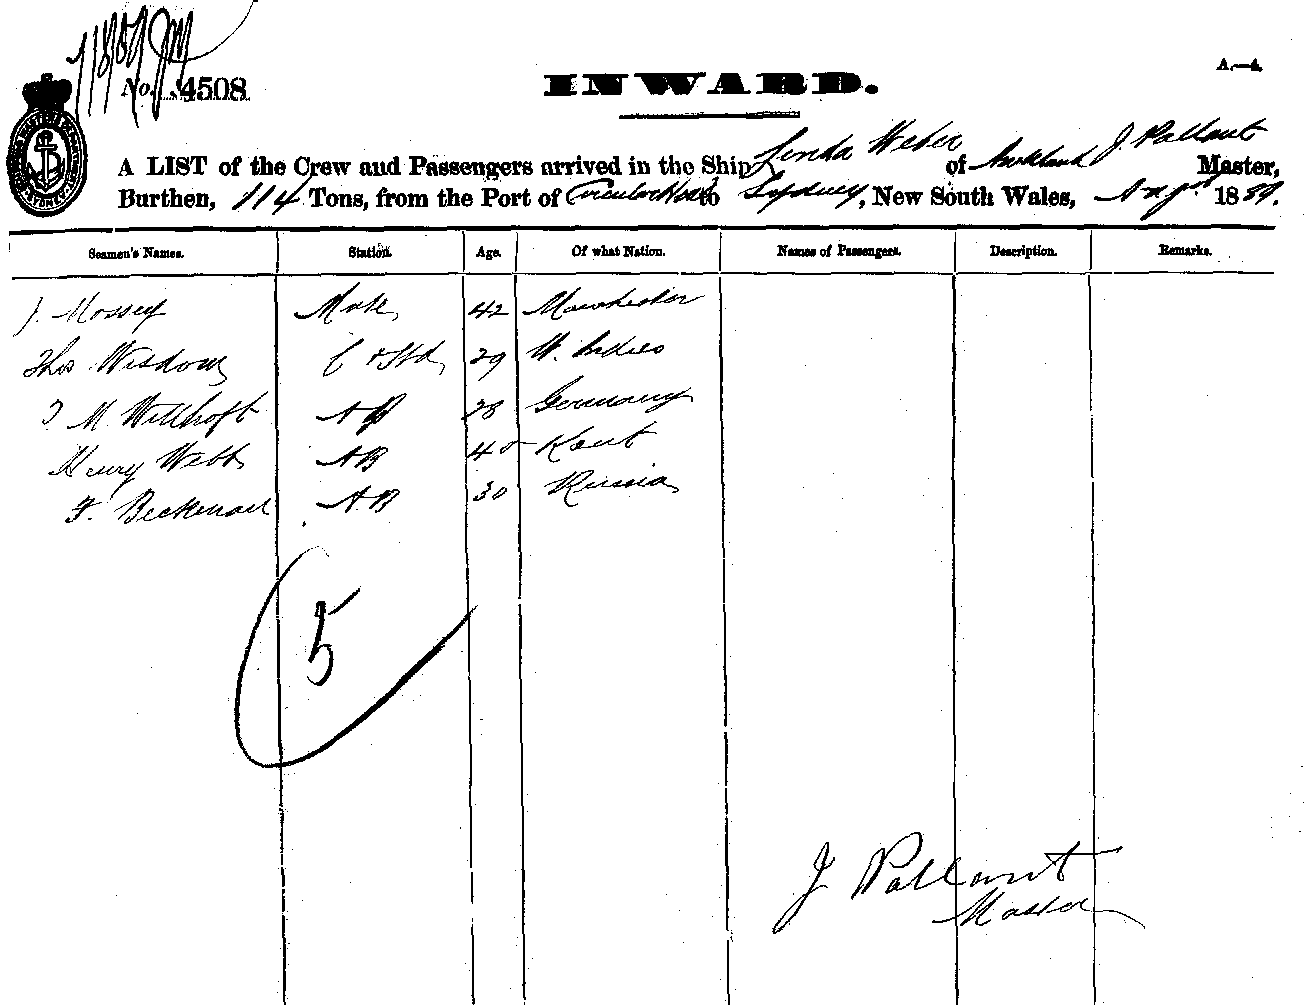 No. 4508
INWARD.
A.—4.
A LIST of the Crew and Passengers arrived in the Ship Linda Weber of Auckland J Pallant Master,
Burthen, 114 Tons, from the Port of to Sydney, New South Wales, Augst 1889.
Seamen's Names. Station. Age. Of what Nation. Names of Passengers. Description. Remarks.
J. Mossey Mate 42 Manchester
Thos Wisdom C & Std, 29 W. Indies
J M Willhoft AB 28 Germany
Henry Webb AB 40 Kent
F. Beckman AB 30 Russia
5
J Pallant
Master